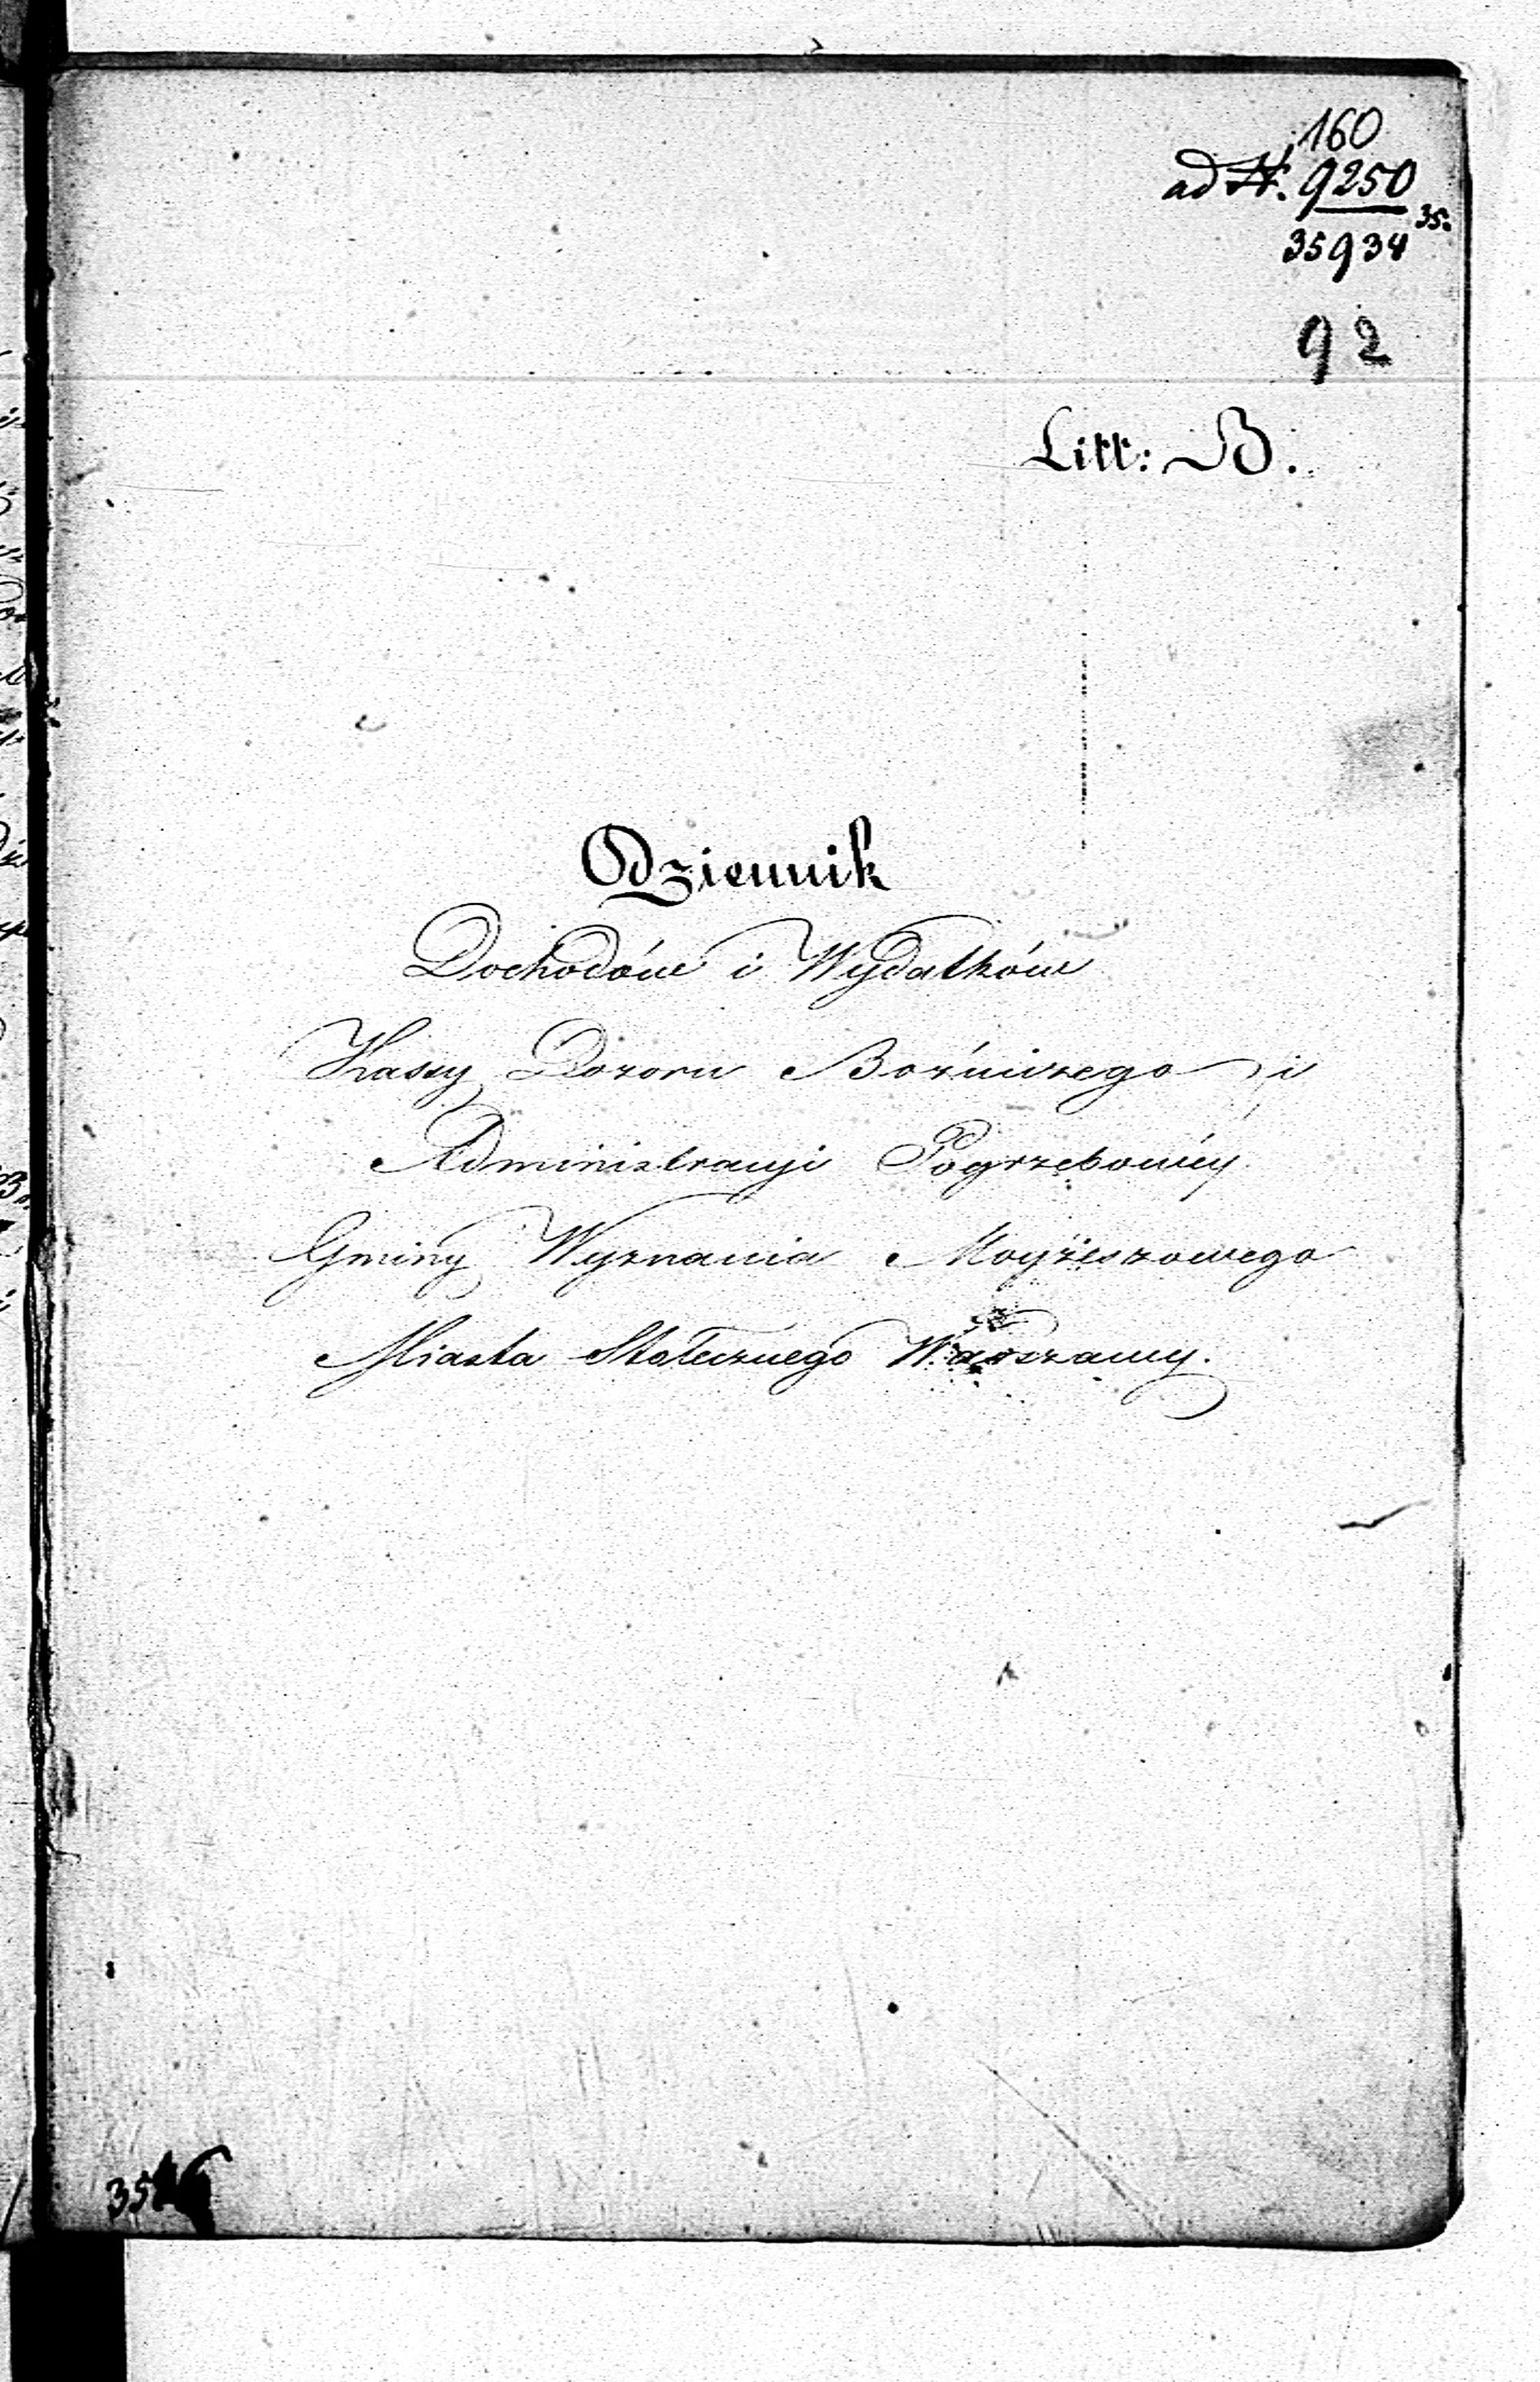 160
ad N. 9250
35.
35934
92
Litt: B.
Dziennik
Dochodów i Wydatków
Kassy Dozoru Bożniczego i
Administracyi Pogrzebowéy
Gminy Wyznania Moyżeszowego
Miasta Stołecznego Warszawy.